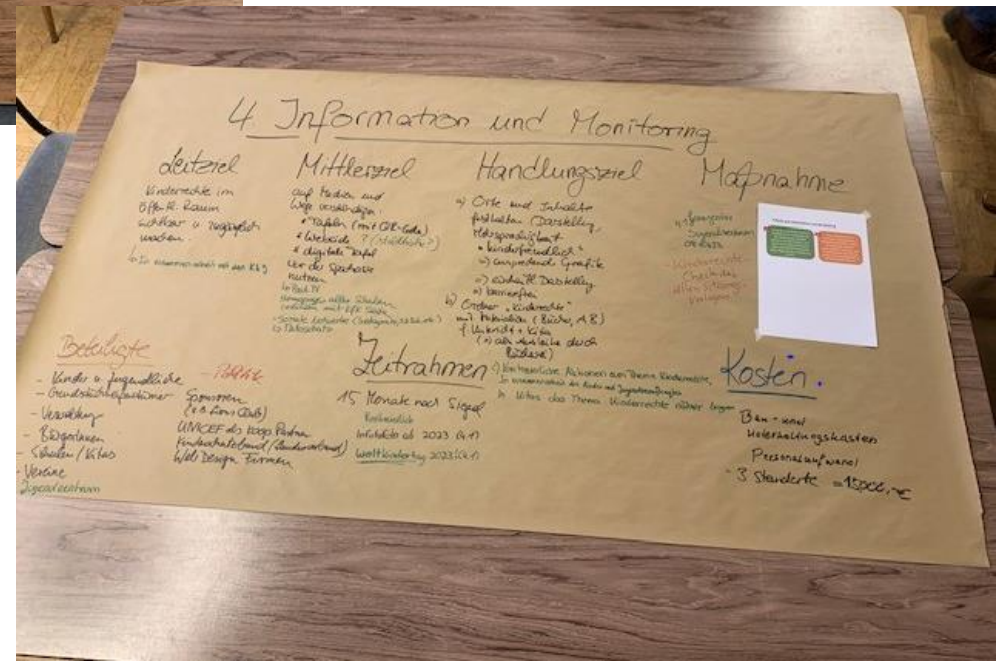 4 Information und Monitoring
Leitziel
Kinderrechte im
öffentl. Raum
sichtbar u. zugänglich
machen.
Mittlerziel
auf Medien und
Wege verständigen.
* Tafeln (mit QR-Code)
* Webseite ? (städtische?)
* digitale Tafel
vor der Sparkasse
nutzen
Homepages aller Schulen
- Soziale Netzwerke
↳ Datenschutz
Handlungsziel
a) Orte und Inhalte
festhalten (Darstellg,
Mehrsprachigkeit
* kinderfreundlich
=) ansprechende Grafik
=) einheitl. Darstellg
=) barrierefrei
b) Ordner "Kinderrechte"
mit Materialien (Bücher, AB)
f. Unterricht + Kita
(=) als Ausleihe durch
Bücherei)
c) Kontinuierliche Aktionen zum Thema Kinderrechte,
↳ Kitas das Thema Kinderrechte näher bringen
Maßnahme
Kinderrechte-
Check der
Vorlagen
Beteiligte
- Kinder u. Jugendliche
- Grundstückseigentümer
- Verwaltung
- Bürgerinnen
- Schulen / Kitas
- Vereine
Jugendzentrum
- Politik
Sponsoren
(z.B. Lions Club)
UNICEF als Koop. Partner
Kinderschutzbund / Landesverband)
Web Design Firmen
Zeitrahmen
15 Monate nach Siegel
Kontinuierlich
Infotafeln ab 2023 (4.1)
Weltkindertag 2023 (4.1)
Kosten.
Bau- und
Unterhaltungskosten
Personalaufwand
3 Standorte = 15000,-€